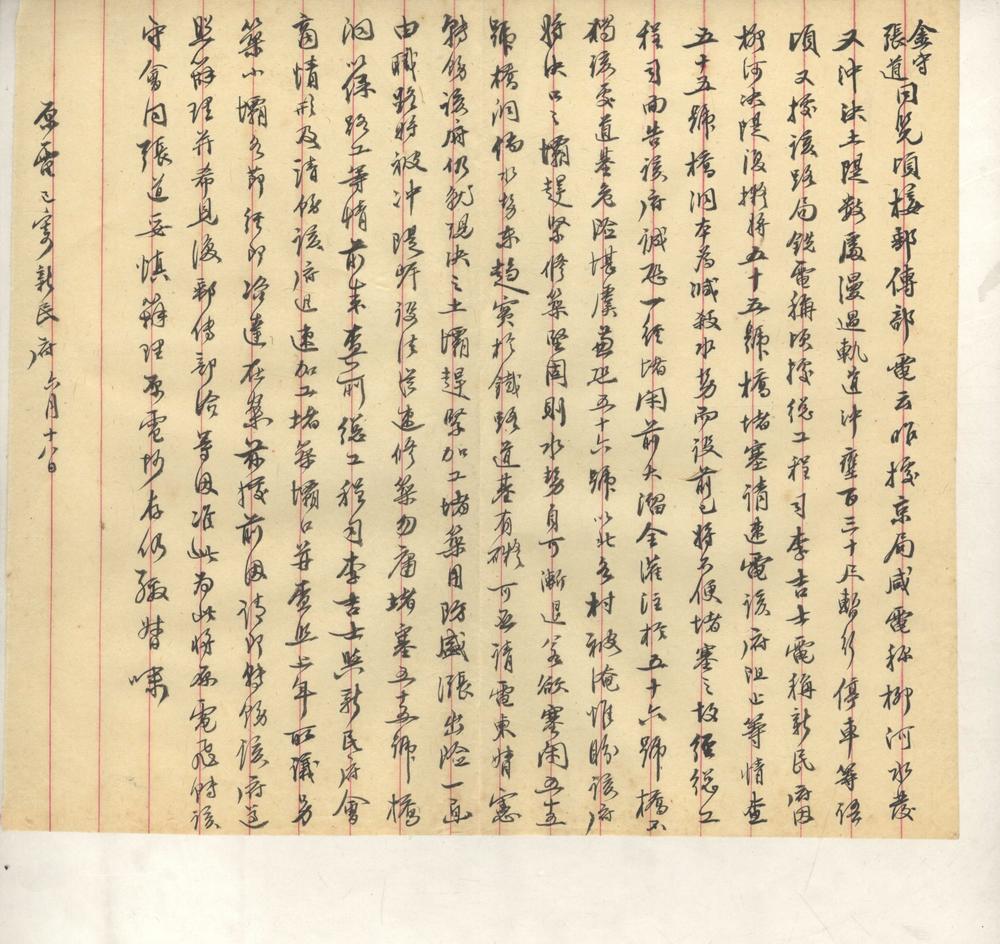 金守
張道同覽頃接郵傳部電云昨據京局咸電稱柳河水發
又沖決土隄數處漫過軌道沖壅百三十尺暫行停車等語
頃又接該路局銑電稱頃據總工程司李吉士電稱新民府因
柳河決隄沒擬將五十五號橋堵塞請速電該府阻止等情查
五十五號橋洞本為減殺水勢而設前已將不便堵塞之故經總工
程司面告該府誠恐一經堵閉前大溜全灌注於五十六號橋不
獨該處道基危險堪虞並恐五十六號以北各村被淹惟盼該府
將決口之壩趕緊修築堅固則水勢自可漸退若欲塞閉五五
號橋洞偪水勢東趨實於鐵路道基有礙可否請電東督憲
轉飭該府仍就現決之土壩趕緊加工堵築用防盛漲出險一面
由職路將被沖隄岸設法從速修築勿庸堵塞五十五號橋
洞以保路工等情前來查前總工程司李吉士與新民府會
商情形及請飭該府迅速加工堵築壩口並查照上年所議另
築小壩各節經即咨達在案茲據前因請即轉飭該府遵
照辦理并希見復郵傳部洽等因准此為此將原電飛飭該
守會同張道妥慎辦理原電抄存仍繳督嘯
原電已寄新民府六月十八日